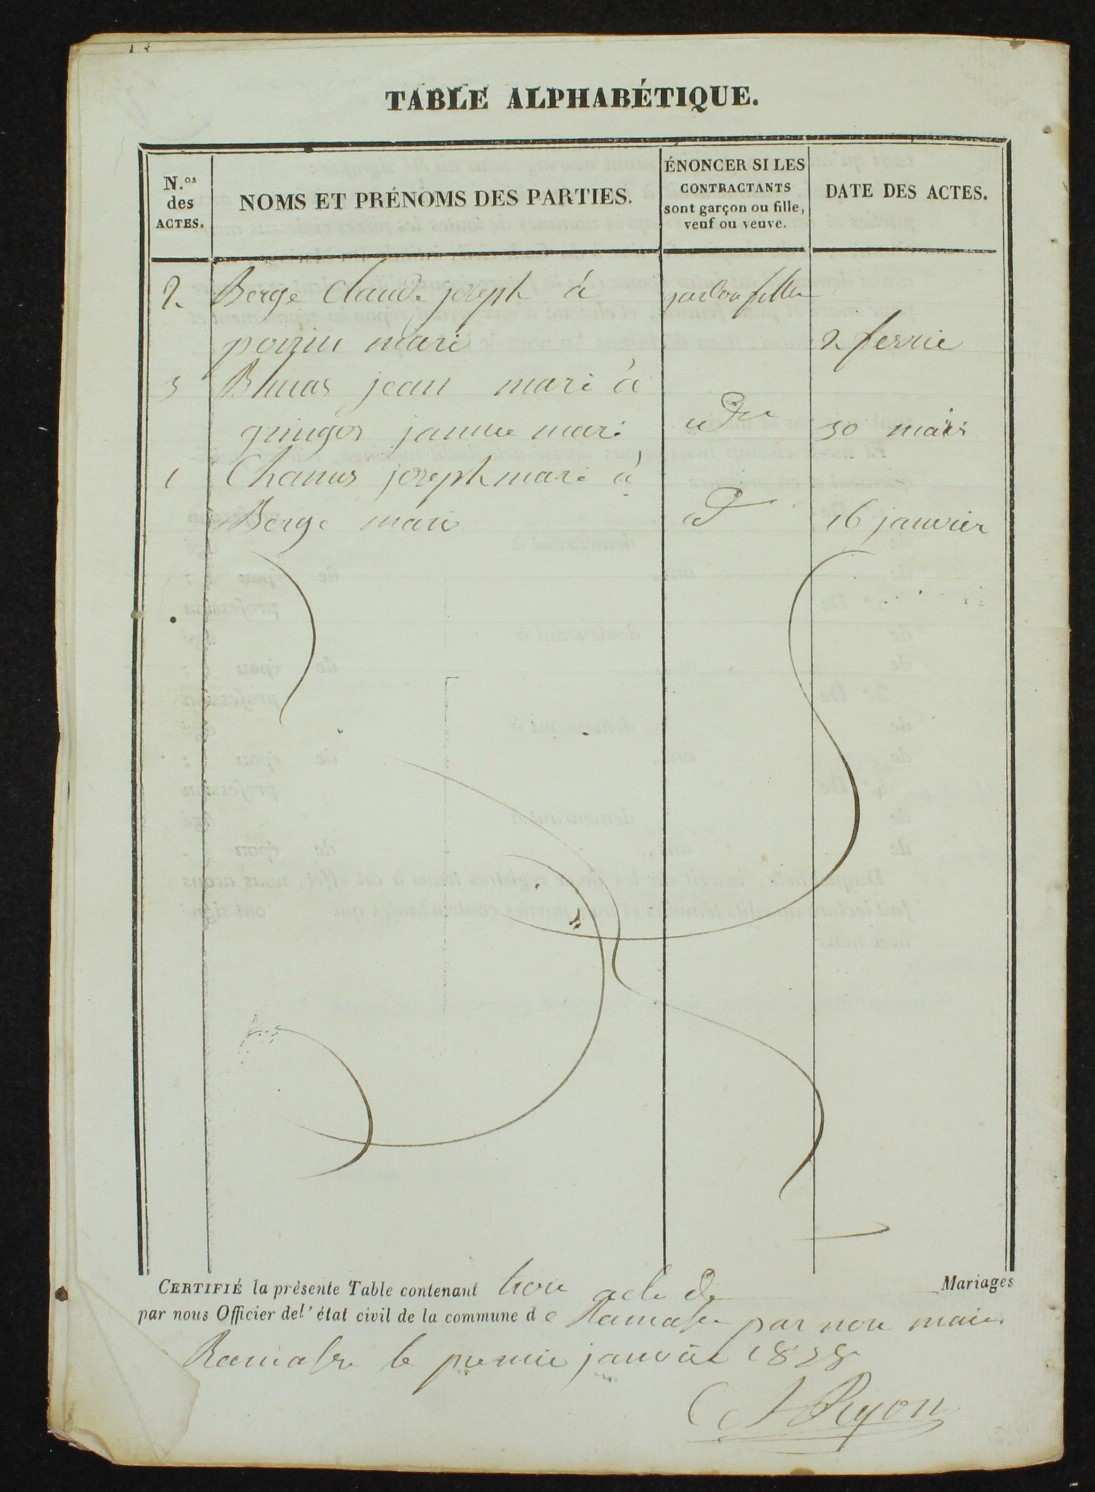 TABLE ALPHABÉTIQUE.
N.os des ACTES.
NOMS ET PRÉNOMS DES PARTIES.
ÉNONCER SI LES CONTRACTANTS sont garçon ou fille, veuf ou veuve.
DATE DES ACTES.
2 Berge Claude joseph à
marie 2
3 jean marie à
marie 30 mars
1 Chanus joseph marie à
Berge marie 16 janvier
CERTIFIÉ la présente Table contenant trois acte de Mariages
par nous Officier de l'état civil de la commune de Ramasse par nous maire
Ramasse le premier janvier 1828